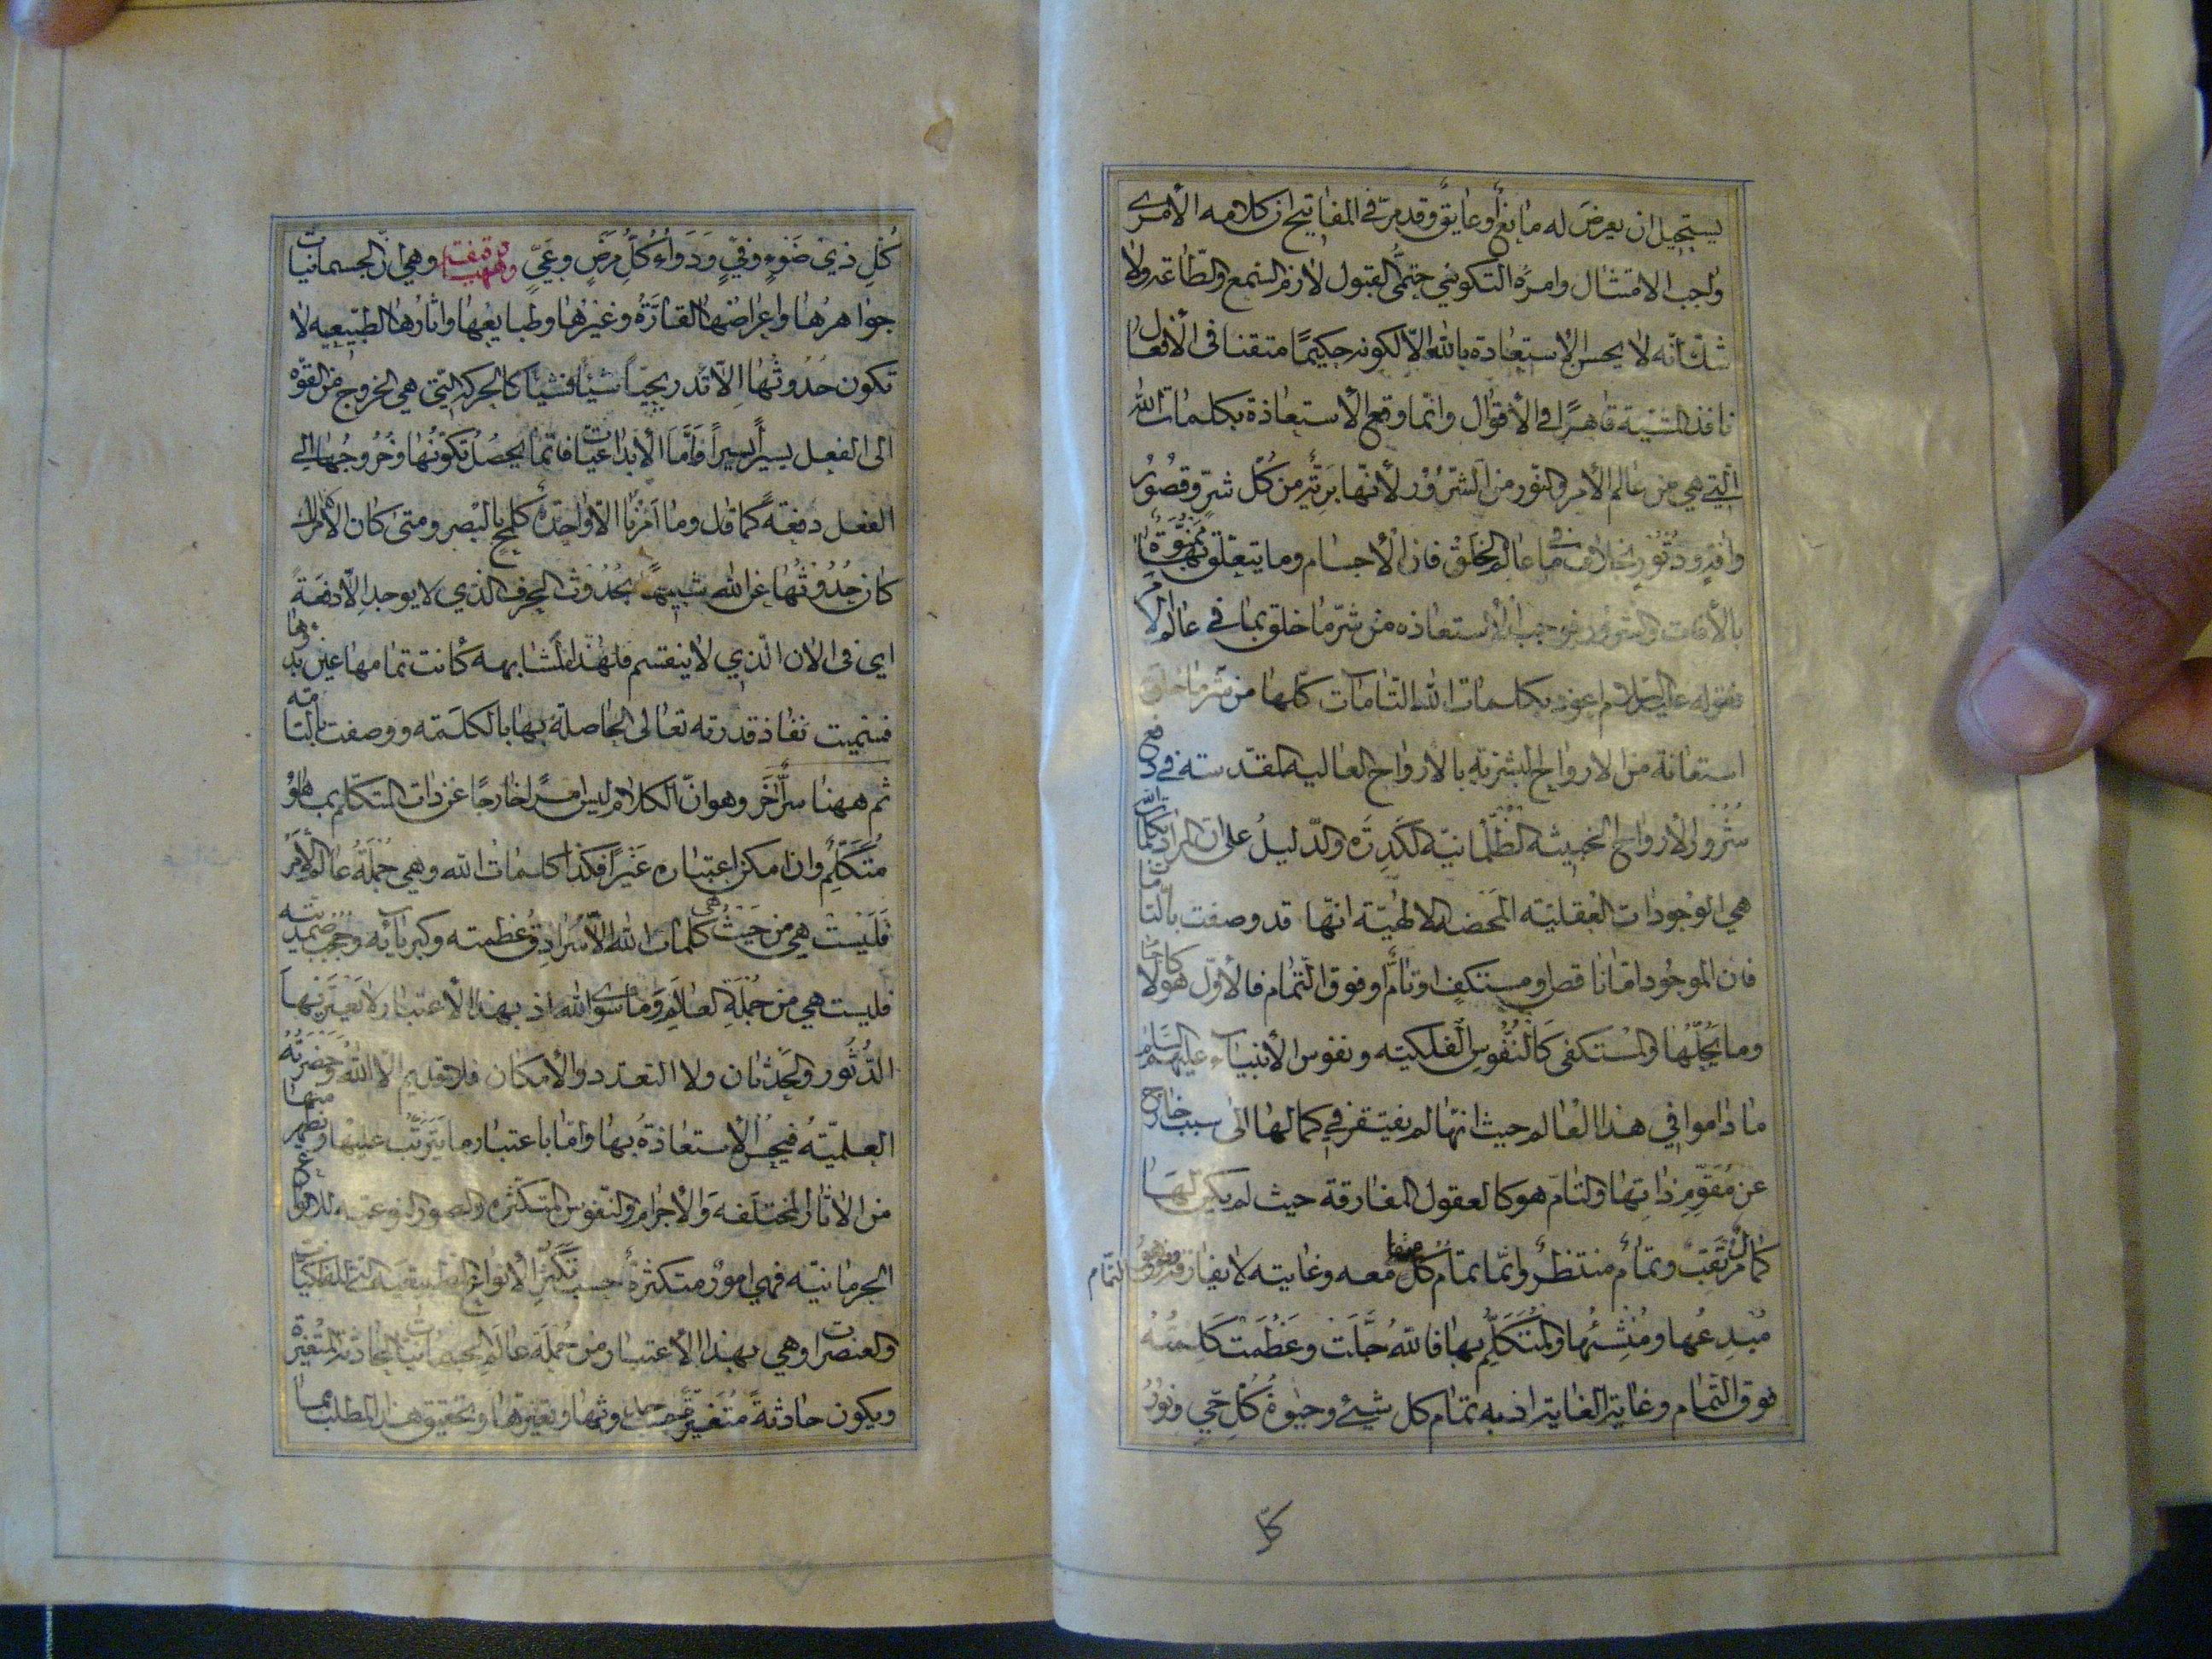 يستحيل ان يعرض له مانع أو عايق وقد مرّ في المفاتيح ان كلامه الأمري
واجب الامتثال وامره التكويني حتمي القبول لازم السمع والطّاعة ولا
شكّ انّه لا يحسن الاستعاذة بالله الّا لكونه حكيمًا متقنا في الأفعال
نافذ المشيّة قاهرًا في الأقوال وانّما وقع الأستعاذة بكلمات الله
الّتي هي من عالم الأمر والنّور من الشّرُوْر لأنّها بريّة من كُلّ شرٍّ وقصُورٍ
وافةٍ ودُثُوْرٍ بخلاف ما في عالم الخلق فان الأجسام وما يتعلّق بها ممنوّة
بالأفات والشرور فوجب الأستعاذه من شرّ ما خلق بما في عالم الأمر
فقوله عليه السلام اعوذ بكلمات الله التّامات كلّها من شرّ ما خلق
استعانة من الارواح البشريّة بالأرواح العالية المقدّسة في دفع
شُرُور الأرواح الخبيثه الظُّلمانيّه الكَدِرَه والدّليلُ على انّ المراد بكلمات الله
هي الوجودات العقليّه المحضه الالهيّة انّها قد وصفت بالتّامّات
فان الموجود امّا ناقص او مستكفٍ او تامٌّ او فوق التّمام فالأوّل هو كالأجسام
وما يحُلّها والمستكفى كالنُّفُوس الفلكيّه ونفوس الأنبياء عليهم السلام
ما داموا في هذا العالم حيث انّها لم يفتقر في كمالها الى سبب خارج
عن مُقوِّم ذاتها والتامّ هو كالعقول المفارقة حيث لم يكن لها
كمالٌ مُرتَقبٌ وتمامٌ منتظرٌ وانّما تمام كلّ منها معه وغايته لا يفارقه وفوق التمام
مُبدِعُها ومُنشِئُها والمُتكَلِّم بها فالله جَلّتْ وعَظُمَت كَلِمتُهُ
فوق التّمام وغاية الغاية اذ به تمام كل شيئ وحيوة كُلّ حَيّ ونورُ
كلّ
كُلِّ ذي ضَوءٍ وفيءٍ ودَوَاءُ كُلِّ مَرَضٍ وعَيٍّ وههنا دقيقة وهي ان الجسمانيات
جواهرُها واعراضُها القارّة وغيرُها وطبايعُها واثارُها الطبيعيه لا
تكون حُدُوثُها اِلّا تدريجيّاً شيئًا فشيئًا كالحركة الّتي هي الخروج من القوّه
الى الفعل يسيراً يسيراً وامّا الأبداعيّات فانّما يحصُل تكَوُّنُها وخُرُوجُها الى
الفعل دفعةً كما قال وما امرُنا الّا واحدةٌ كلمحٍ بالبَصر ومتى كان الأمر كذلك
كان حُدُوثُها عن الله شبيهًا بحُدوث الحرف الذي لا يوجد اِلّا دفعَةً
اي في الان الّذي لا ينقسم فلهذه المشابهه كانت تمامها عين بدوها
فسُمّيت نفاذ قدرته تعالى الحاصلة بها بالكلمه ووصفت بالتّامّه
ثم ههنا سرٌّ آخَر وهو انّ الكلام ليس امرًا خارجًا عن ذات المتكلّم بما هو
مُتَكَلّمٌ وان امكن اعتباره غَيْراً فكذا كلمات الله وهي جُملَةُ عالم الأمر
فَلَيْسَت هي من حَيْثُ هي كلمات الله الّا سُرادِق عَظمته وكبريائه وحُجُب صَمَديّته
فليست هي من جُمْلَةِ العالم وما سوى الله اذ بهذا الأعتبار لا يعتريها
الدُّثُور والحِدْثان ولا التعدد والأمكان فلا قديم الّا الله وحَضرَتُه
العِلميّةُ فيحسُن الأستعاذةُ بها وامّا باعتبار ما يَتَرتّب عليها ويظهر منها
من الاثار المختلفة والأجرام والنّفوس المتكثّره والصور النوعيّه للأنواع
الجرمانيّه فهي امورٌ متكثرةٌ حسب تَكَثُّر الأنواع الطبيعيه الّتي للفلكيّات
والعنصرات وهي بهذا الأعتبار من جُملَة عالَم الجسمانيات الحادثة المتغيّرة
ويكون حادثةً مُتَغيّرةً حسب حدوثها وتغيّرها وتحقيق هذا المطلب مما